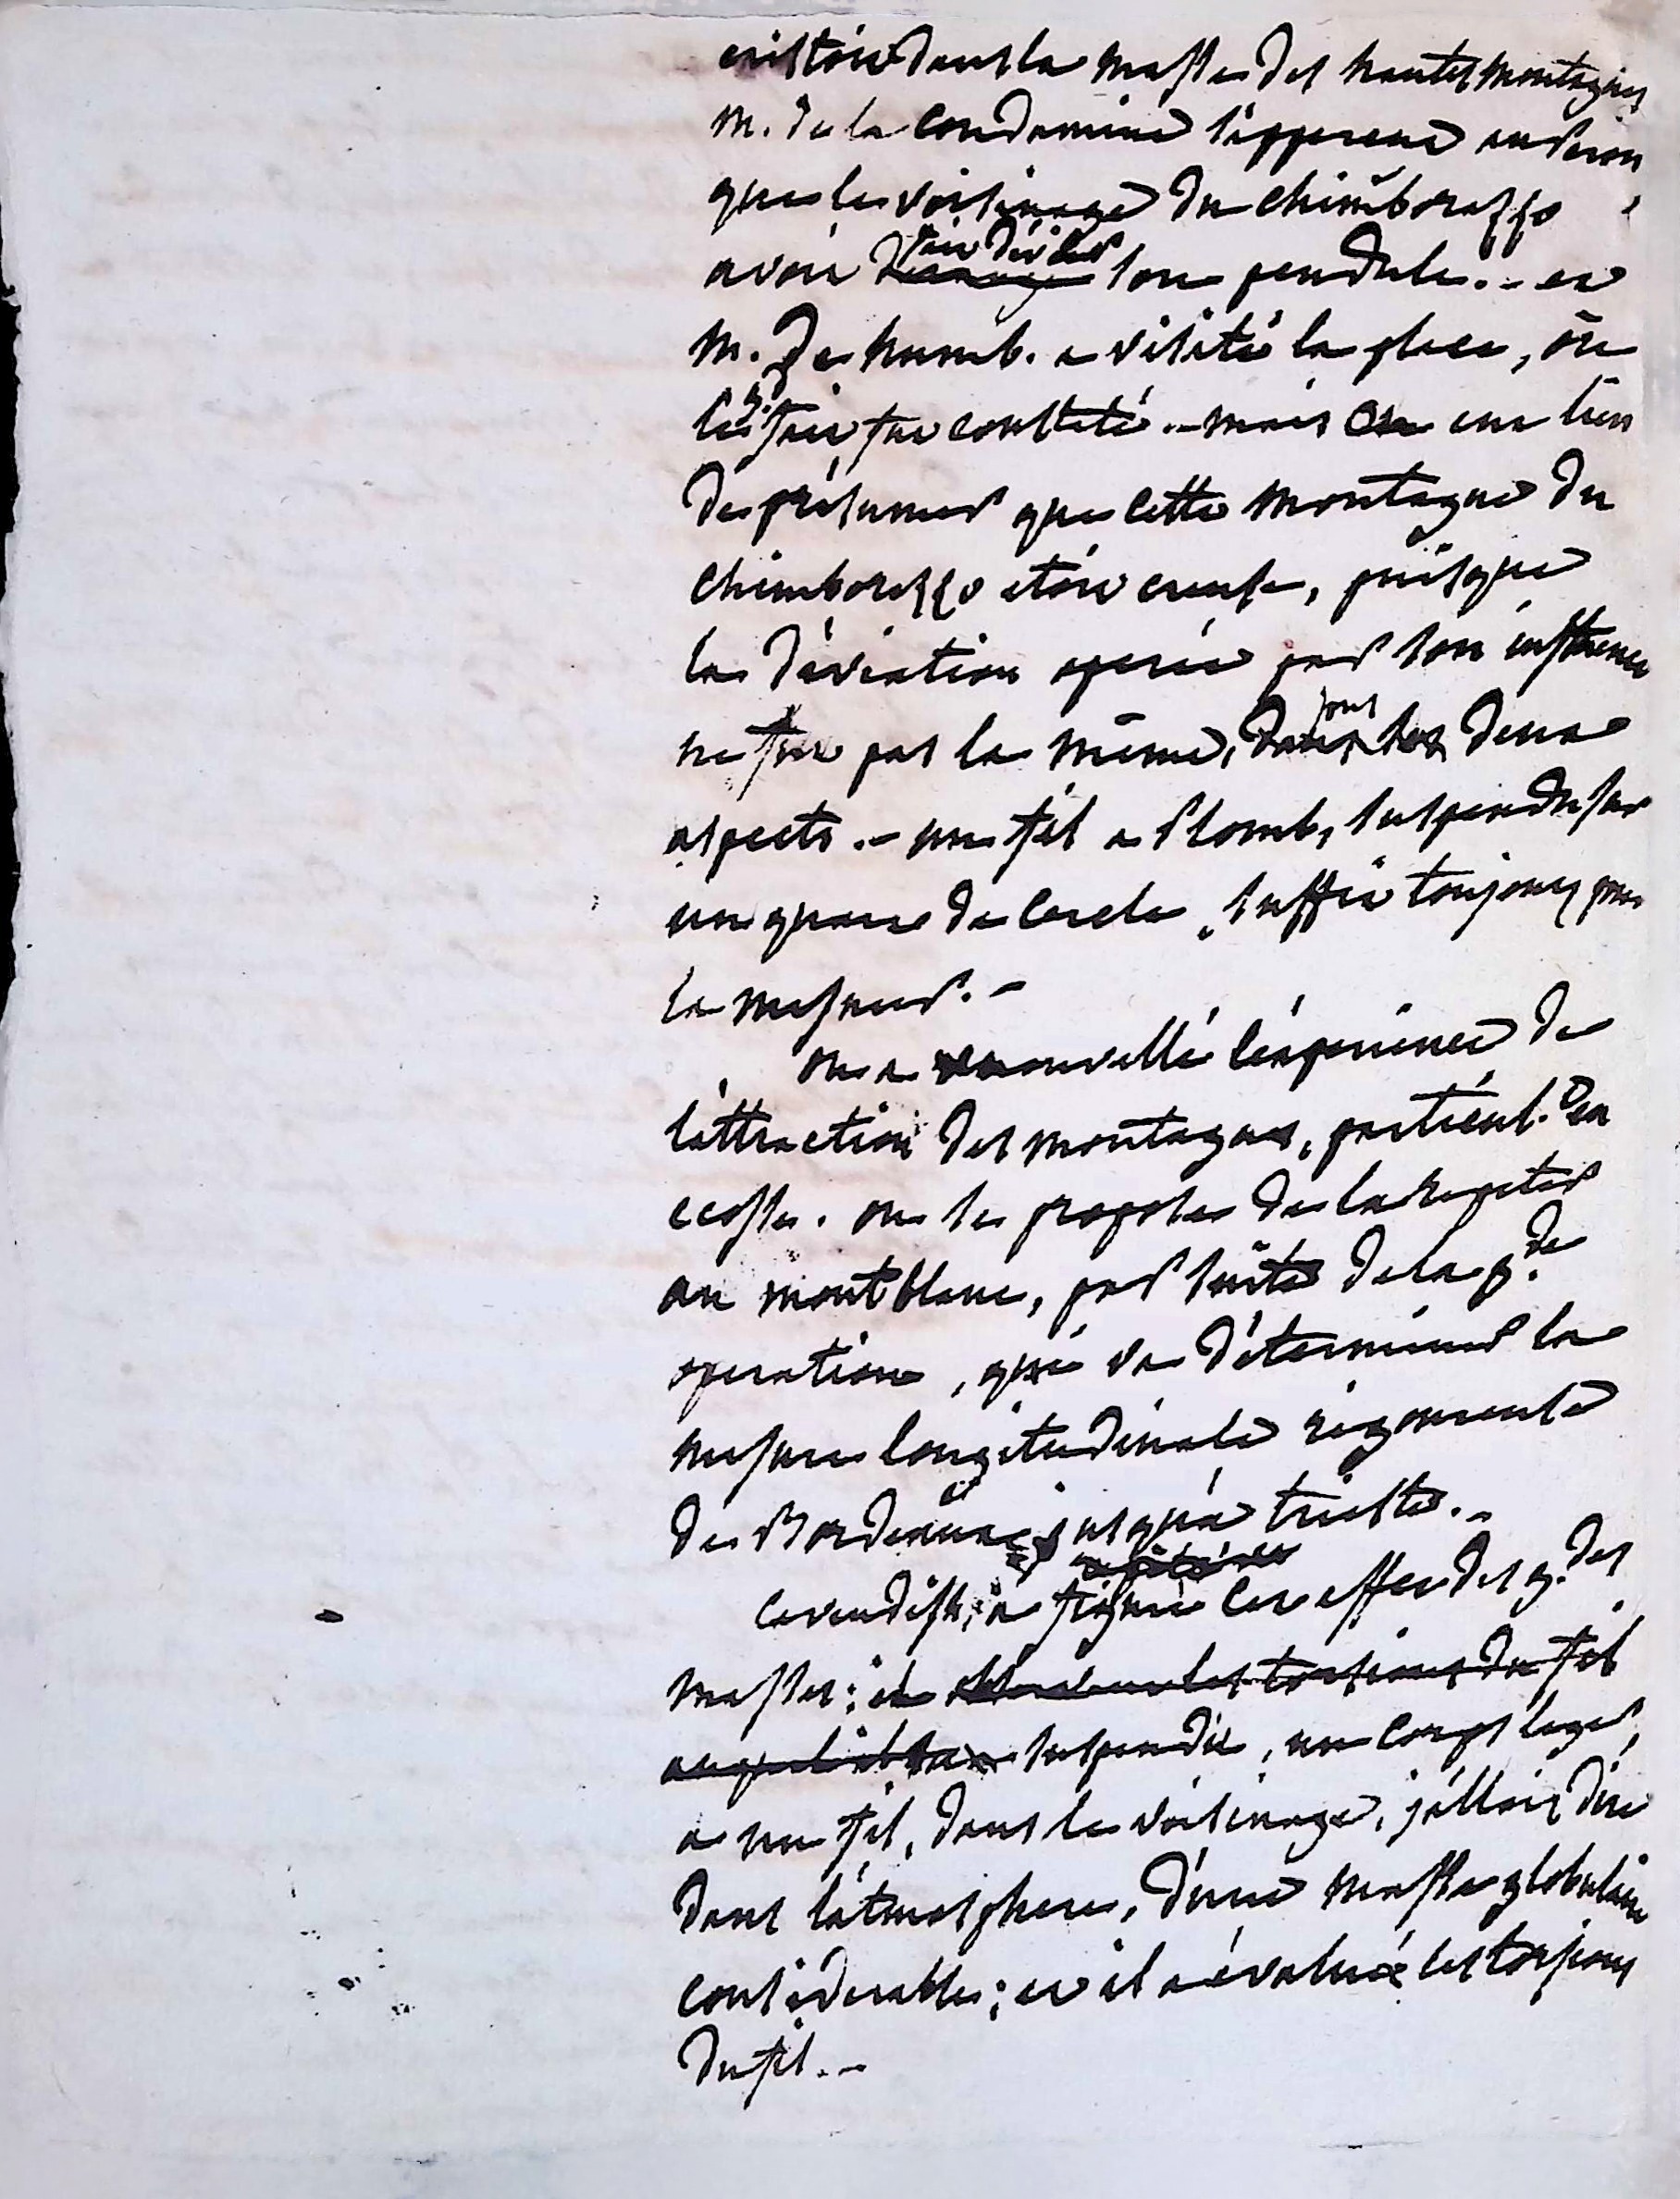 existoit dans la masse des hautes montagnes
m. de la condamine s'apperçut au Pérou
que le voisinage du chimborazzo
avoit fait dévier son pendule. - et
m. de humb. a visité la place, où
le fait fut constaté. - mais on eut lieu
de présumer que cette montagne du
chimborazzo etoit creuse, puisque
la déviation operée par son influence
ne fut pas la même, sous les deux
aspects. - un fil a Plomb, suspendu sur
un quart de cercle, suffit toujours pour
la mesurer. -
on a renouvellé l'expérience de
l'attraction des montagnes, particul. en
ecosse. on se propose de la repeter
au mont blanc, par suite de la g.de
operation, qui va déterminer la
mesure longitudinale rigoureuse
de Bordeaux jusqu'à trieste. -
Cavendish, a figuré cet effet des g.des
masses; il observa les torsions du fil
auquel il suspendit, un corps leger,
a un fil, dans le voisinage, j'allois dire
dans l'atmosphere, d'une masse globulaire
considerable; et il a évalué les torsions
du fil. -